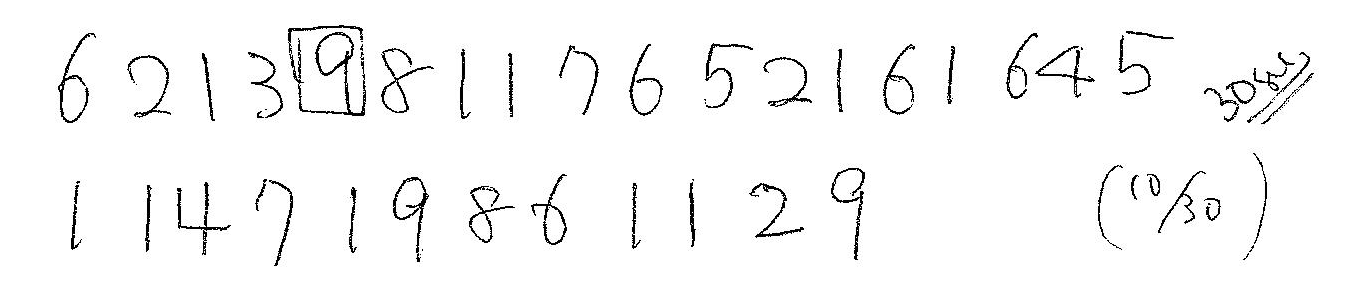 6 2 1 3 19 8 1 1 7 6 5 2 1 6 1 6 4 5 30분
1 1 4 7 1 9 8 6 1 1 2 9 (10/30)